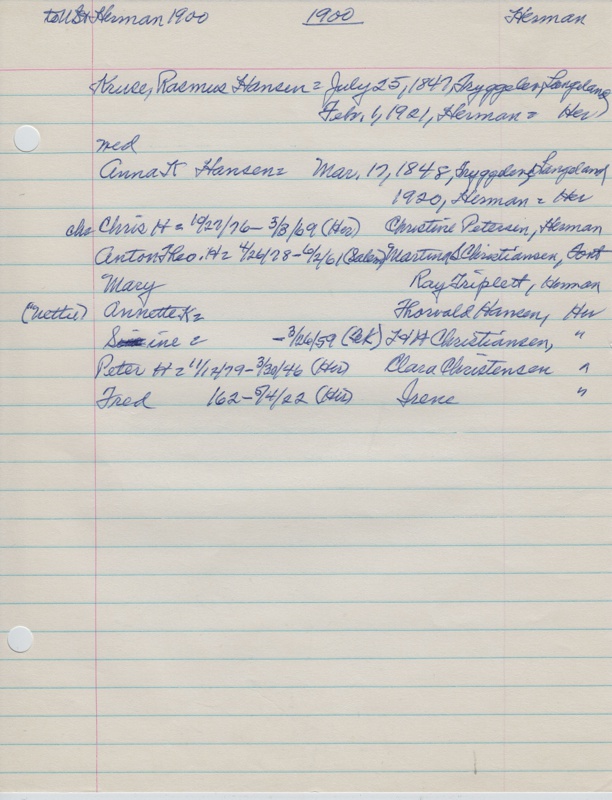 to US & Herman 1900 1900 Herman
Kruse, Rasmus Hansen = July 25, 1847, Tryggelev, Langeland
Febr. 1, 1921, Herman = Her)
wed
Anna K Hansen = Mar. 17, 1848, Tryggelev, Langeland
1920, Herman = Her
chr Chris H = 10/27/76 - 3/3/69 (Her) Christine Petersen, Herman
Anton Theo. H = 4/26/78 - 6/2/61 (Salem) Martina S Christiansen,
Mary Ray Triplett, Herman
(Nettie) Annette K = Thorvald Hansen, Her
Sine = - 3/26/59 ( T H Christiansen, "
Peter H = 11/12/79 - 3/20/46 (Her) Clara Christensen "
Fred 162 - 5/4/22 (Her) Irene "